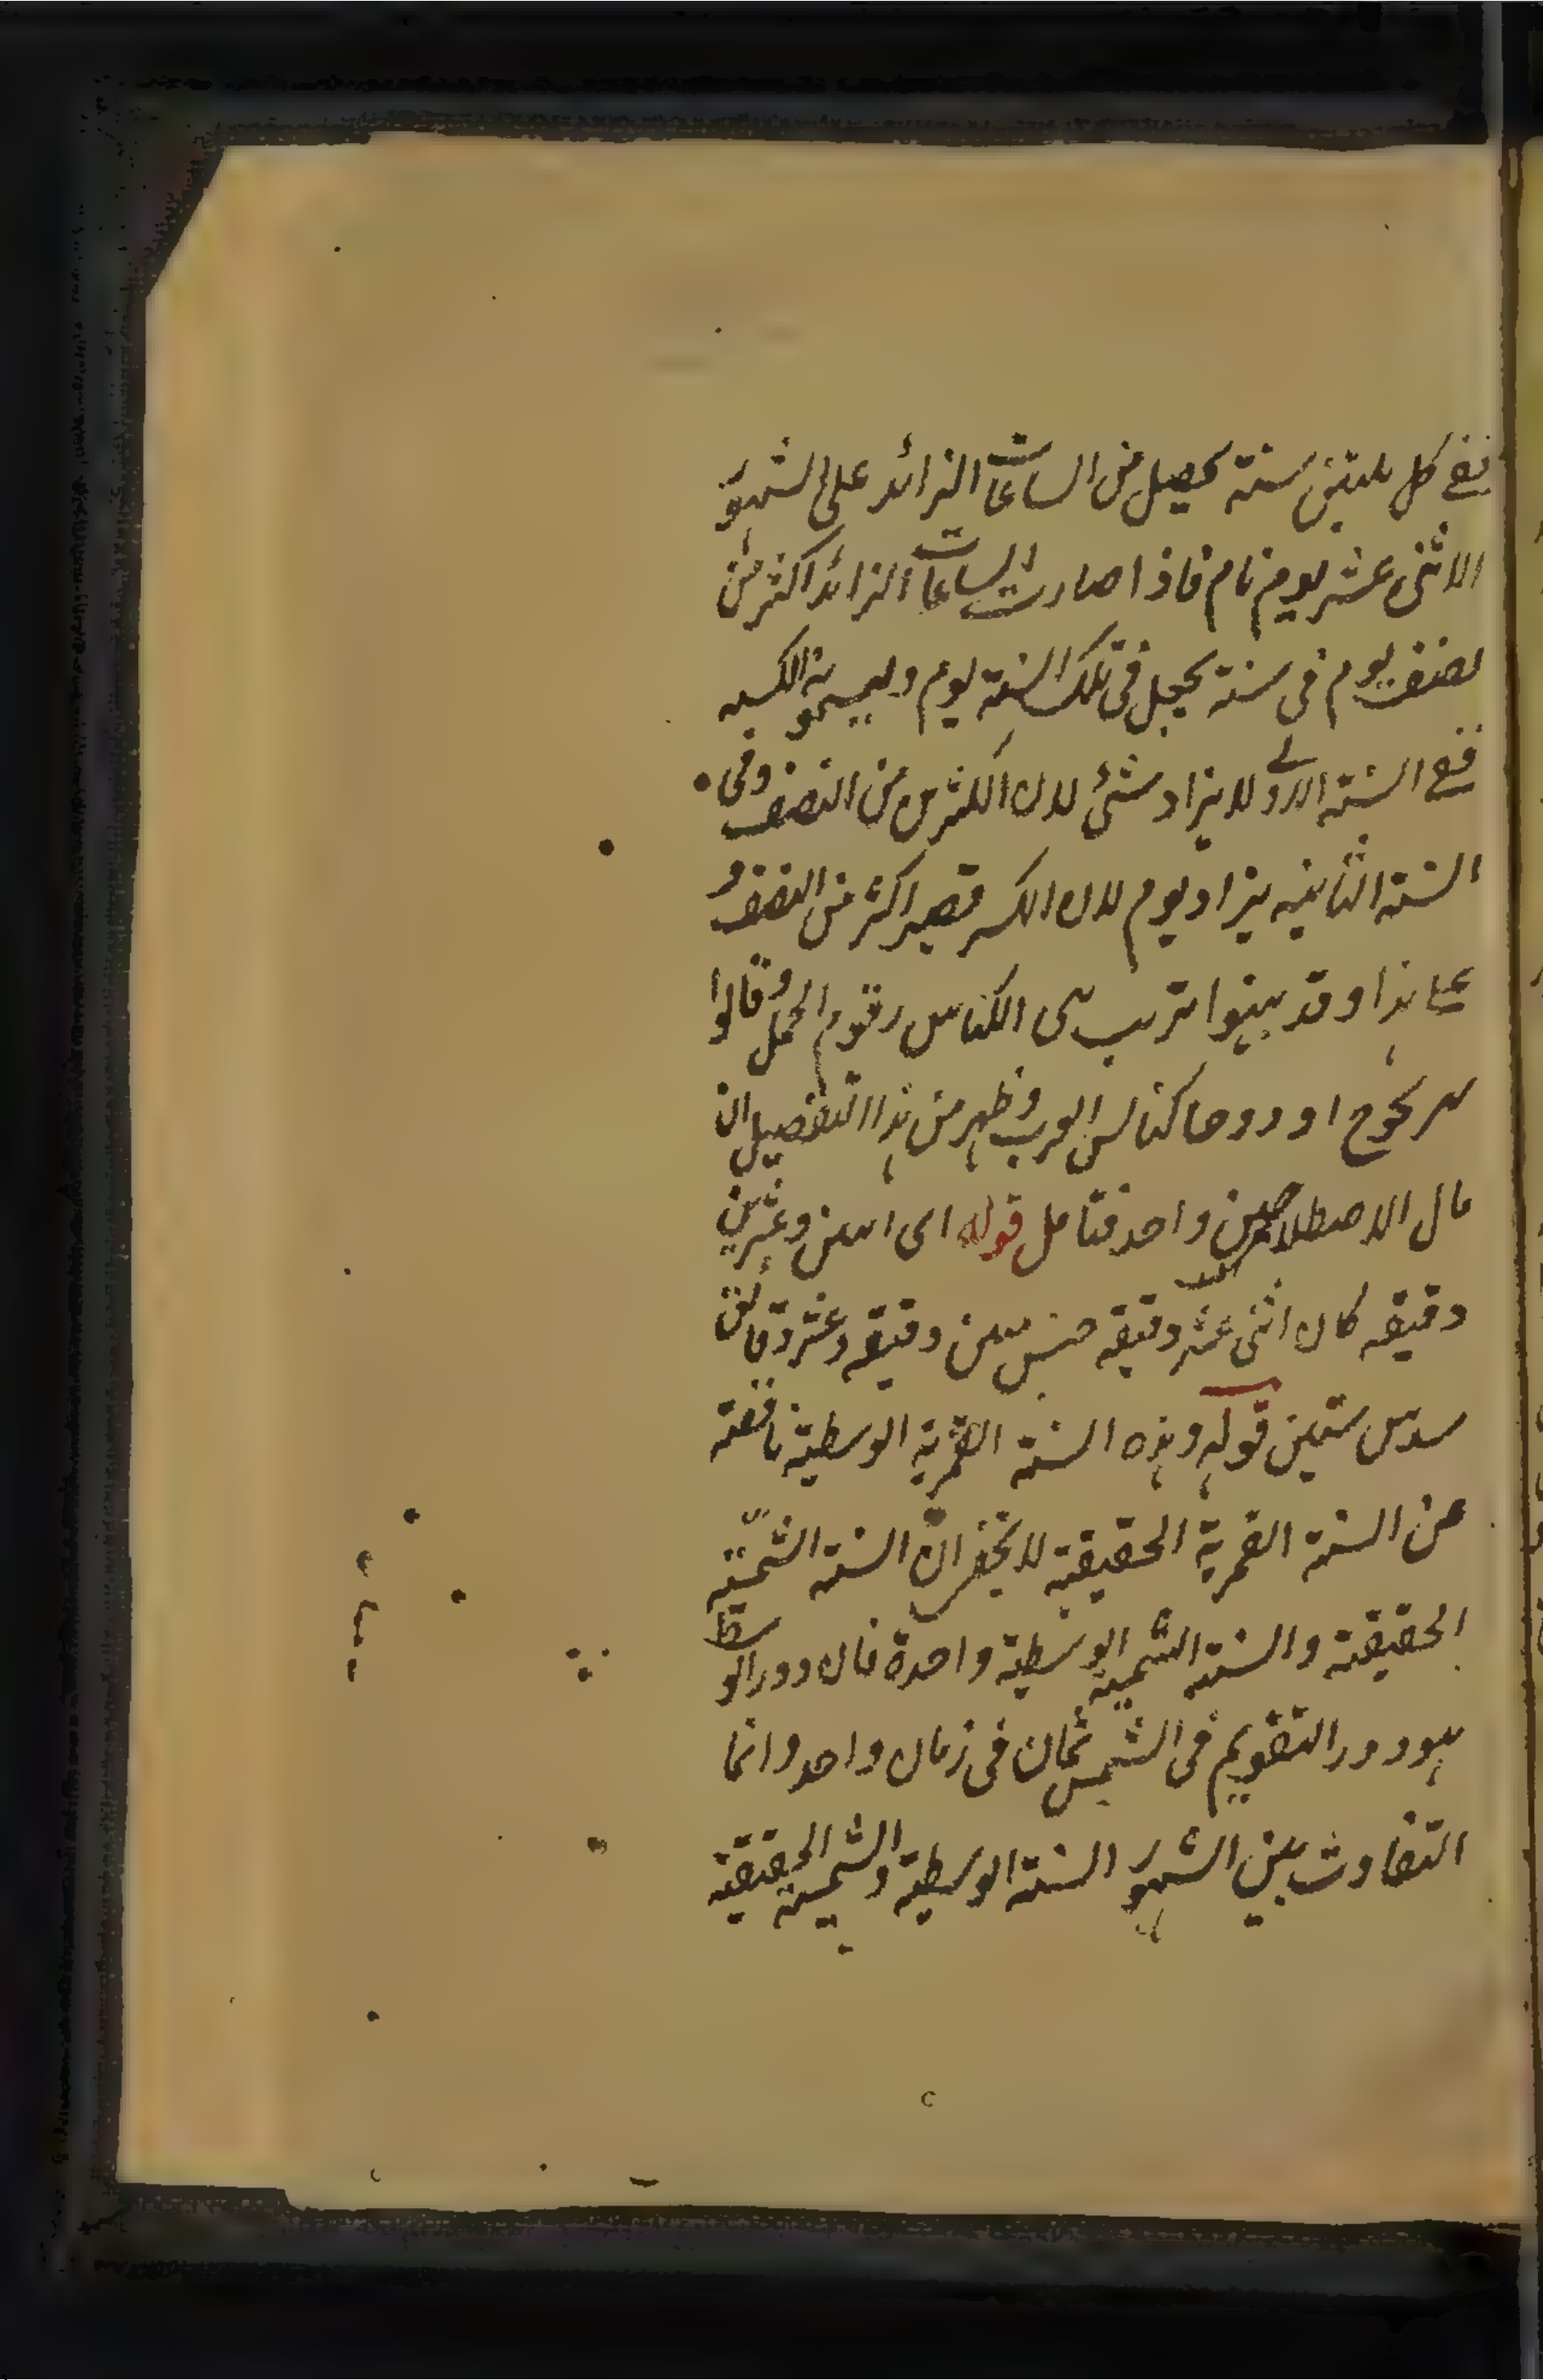 ففي كل ثلثين سنة يحصل من الساعات الزائد على الشهور
الاثنى عشر يوم تام فاذا صارت الساعات الزائد اكثر من
نصف يوم فى سنة يجعل فى تلك السنة يوم ويسمونه الكبيسه
ففي السنة الاولى لا يزاد شئ لان الكثر من النصف وفى
السنة الثانيه يزاد يوم لان الكسر قصير اكثر من النصف و
على هذا وقد بينوا ترتيب سنى الكبائس رقوم الجمل وقالوا
بهزيجوح ادوط كبائس العرب وظهر من هذا التفصيل ان
مال الاصطلاحين واحد فتامل قوله اى اثنين وعشرين
دقيقه كان اثنى عشر دقيقه خمس ستين دقيقه وعشر دقائق
سدس ستين قوله وهذه السنة القمرية الوسطية ناقصة
عن السنة القمرية الحقيقية لا يخفى ان السنة الشمسية
الحقيقية والسنة الشمسية الوسطية واحدة فان دور الوسط
هو ودور التقويم فى الشمس يتمان فى زمان واحد وانما
التفاوت بين الشهور السنة الوسطية والشمسية الحقيقية